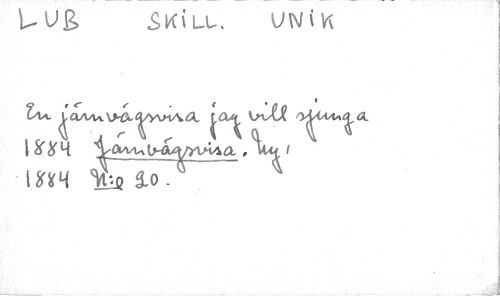 LUB SKILL. UNIK
En järnvägsvisa jag vill sjunga
1884 Järnvägsvisa. Ny,
1884 N:o 20.